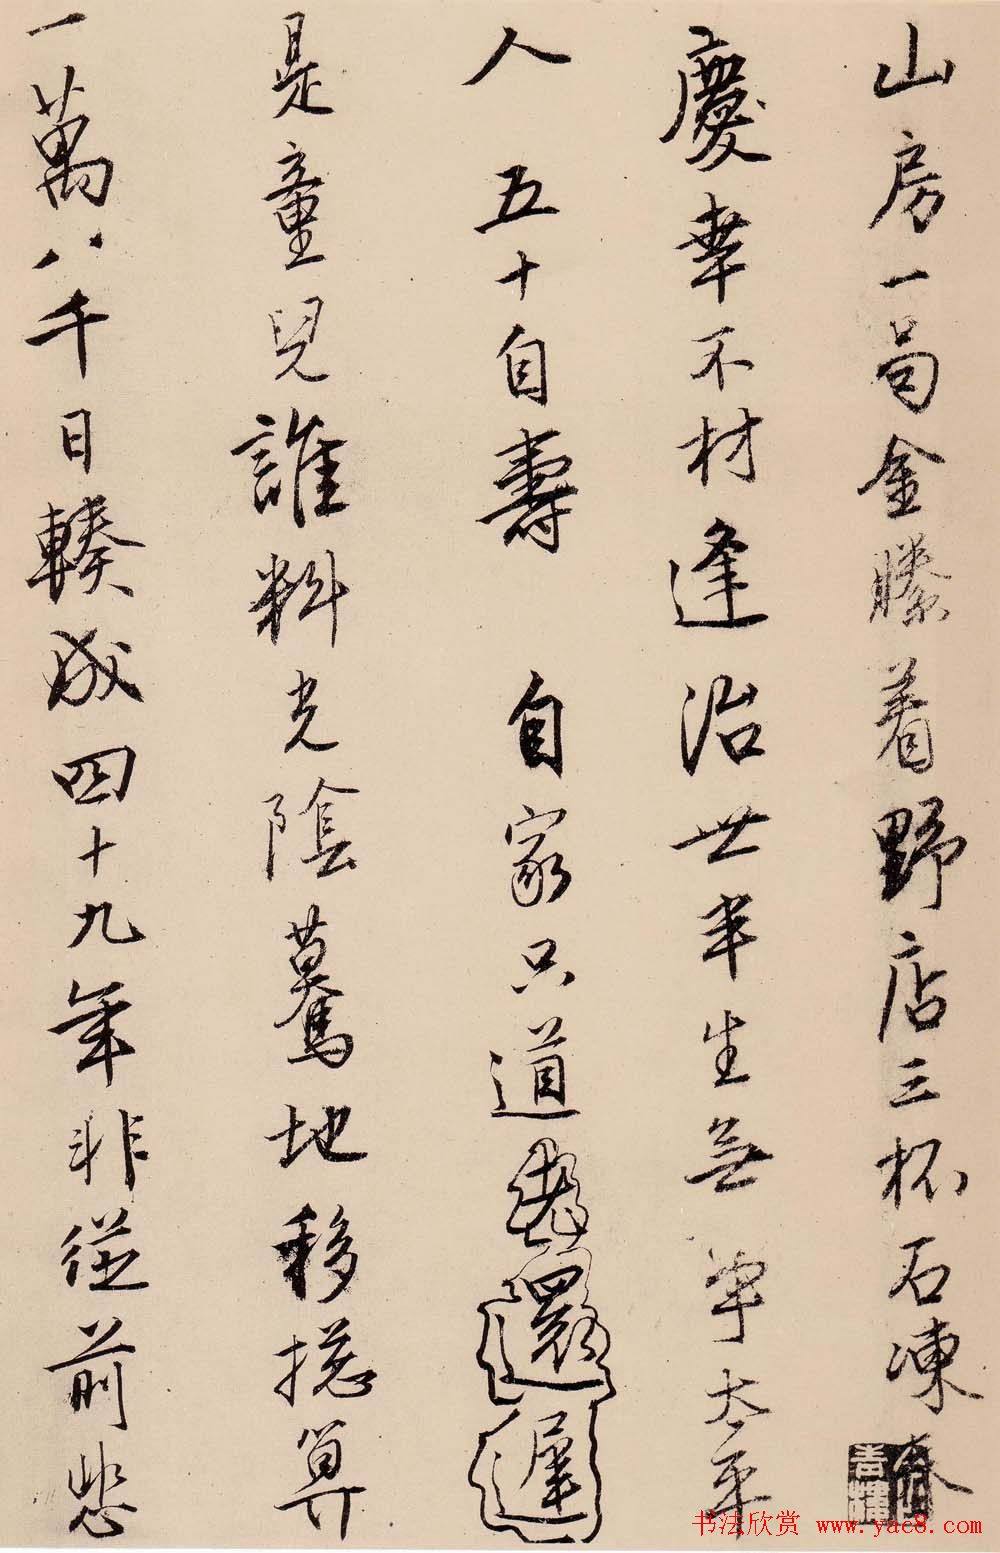 山房一局金縢着野店三杯石凍春
慶幸不材逢治世半生無事太平
人 五十自壽 自家只道老還遲
是童兒誰料光陰驀地移摠算
一萬八千日輳成四十九年非從前悲
书法欣赏 www.yac8.com